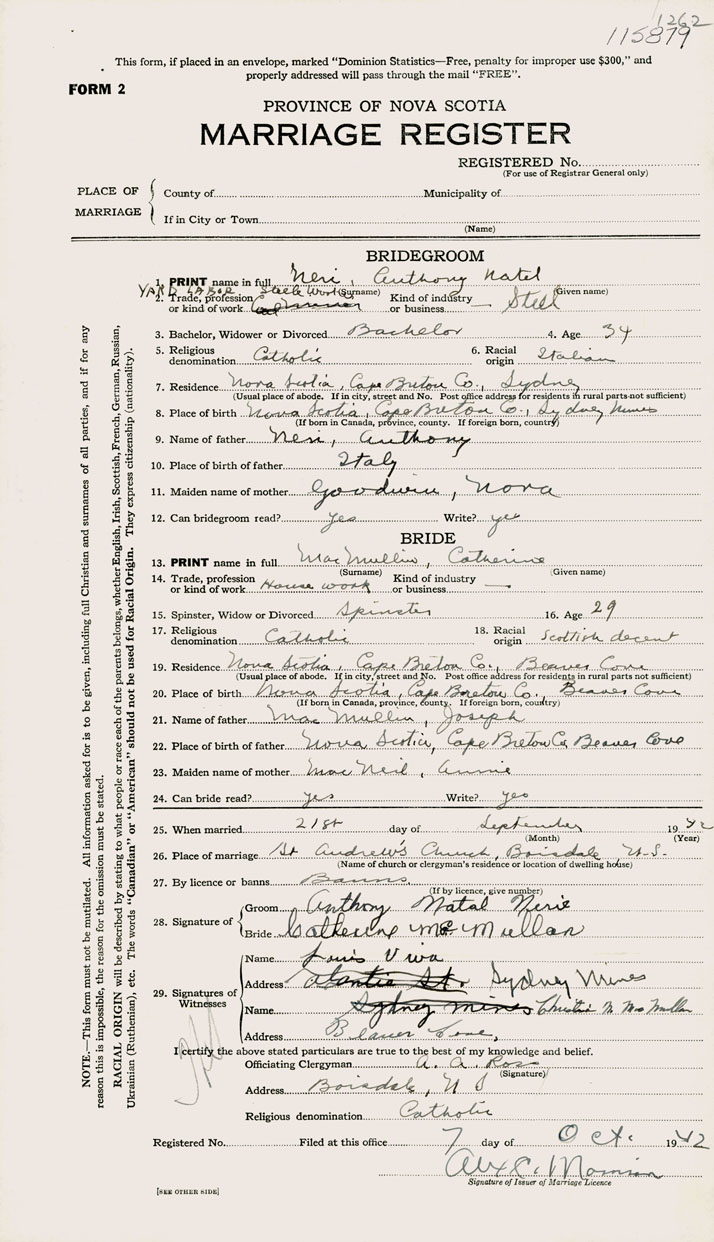 1262
115879
This form, if placed in an envelope, marked "Dominion Statistics—Free, penalty for improper use $300," and
properly addressed will pass through the mail "FREE".
FORM 2
PROVINCE OF NOVA SCOTIA
MARRIAGE REGISTER
REGISTERED No.
(For use of Registrar General only)
PLACE OF MARRIAGE
County of Municipality of
If in City or Town
(Name)
BRIDEGROOM
1. PRINT name in full Neri, Anthony Natel
(Surname) (Given name)
YARD LABOR Steele Works
2. Trade, profession or kind of work Kind of industry or business — Steel
3. Bachelor, Widower or Divorced Bachelor 4. Age 34
5. Religious denomination Catholic 6. Racial origin Italian
7. Residence Nova Scotia, Cape Breton Co., Sydney
(Usual place of abode. If in city, street and No. Post office address for residents in rural parts not sufficient)
8. Place of birth Nova Scotia, Cape Breton Co., Sydney Mines
(If born in Canada, province, county. If foreign born, country)
9. Name of father Neri, Anthony
10. Place of birth of father Italy
11. Maiden name of mother Goodwin, Nora
12. Can bridegroom read? Yes Write? yes
BRIDE
13. PRINT name in full MacMullin, Catherine
(Surname) (Given name)
14. Trade, profession or kind of work House work Kind of industry or business —
15. Spinster, Widow or Divorced Spinster 16. Age 29
17. Religious denomination Catholic 18. Racial origin Scottish decent
19. Residence Nova Scotia, Cape Breton Co., Beaver Cove
(Usual place of abode. If in city, street and No. Post office address for residents in rural parts not sufficient)
20. Place of birth Nova Scotia, Cape Breton Co., Beaver Cove
(If born in Canada, province, county. If foreign born, country)
21. Name of father MacMullin, Joseph
22. Place of birth of father Nova Scotia, Cape Breton Co, Beaver Cove
23. Maiden name of mother MacNeil, Annie
24. Can bride read? yes Write? yes
25. When married 21st day of September 1942
(Month) (Year)
26. Place of marriage St Andrew's Church, Boisdale, N.S.
(Name of church or clergyman's residence or location of dwelling house)
27. By licence or banns Banns
(If by licence, give number)
28. Signature of
Groom Anthony Natal Nerie
Bride Catherine Mc Mullan
29. Signatures of Witnesses
Name Louis Viva
Address Atlantic St. Sydney Mines
Name Sydney Mines Christie M MacMullan
Address Beaver Cove,
I certify the above stated particulars are true to the best of my knowledge and belief.
Officiating Clergyman A. A. Ross
(Signature)
Address Boisdale, N S
Religious denomination Catholic
Registered No. Filed at this office 7 day of Oct. 1942
Alex C. Morrison
Signature of Issuer of Marriage Licence
[SEE OTHER SIDE]
NOTE.—This form must not be mutilated. All information asked for is to be given, including full Christian and surnames of all parties, and if for any
reason this is impossible, the reason for the omission must be stated.
RACIAL ORIGIN will be described by stating to what people or race each of the parents belongs, whether English, Irish, Scottish, French, German, Russian,
Ukrainian (Ruthenian), etc. The words "Canadian" or "American" should not be used for Racial Origin. They express citizenship (nationality).